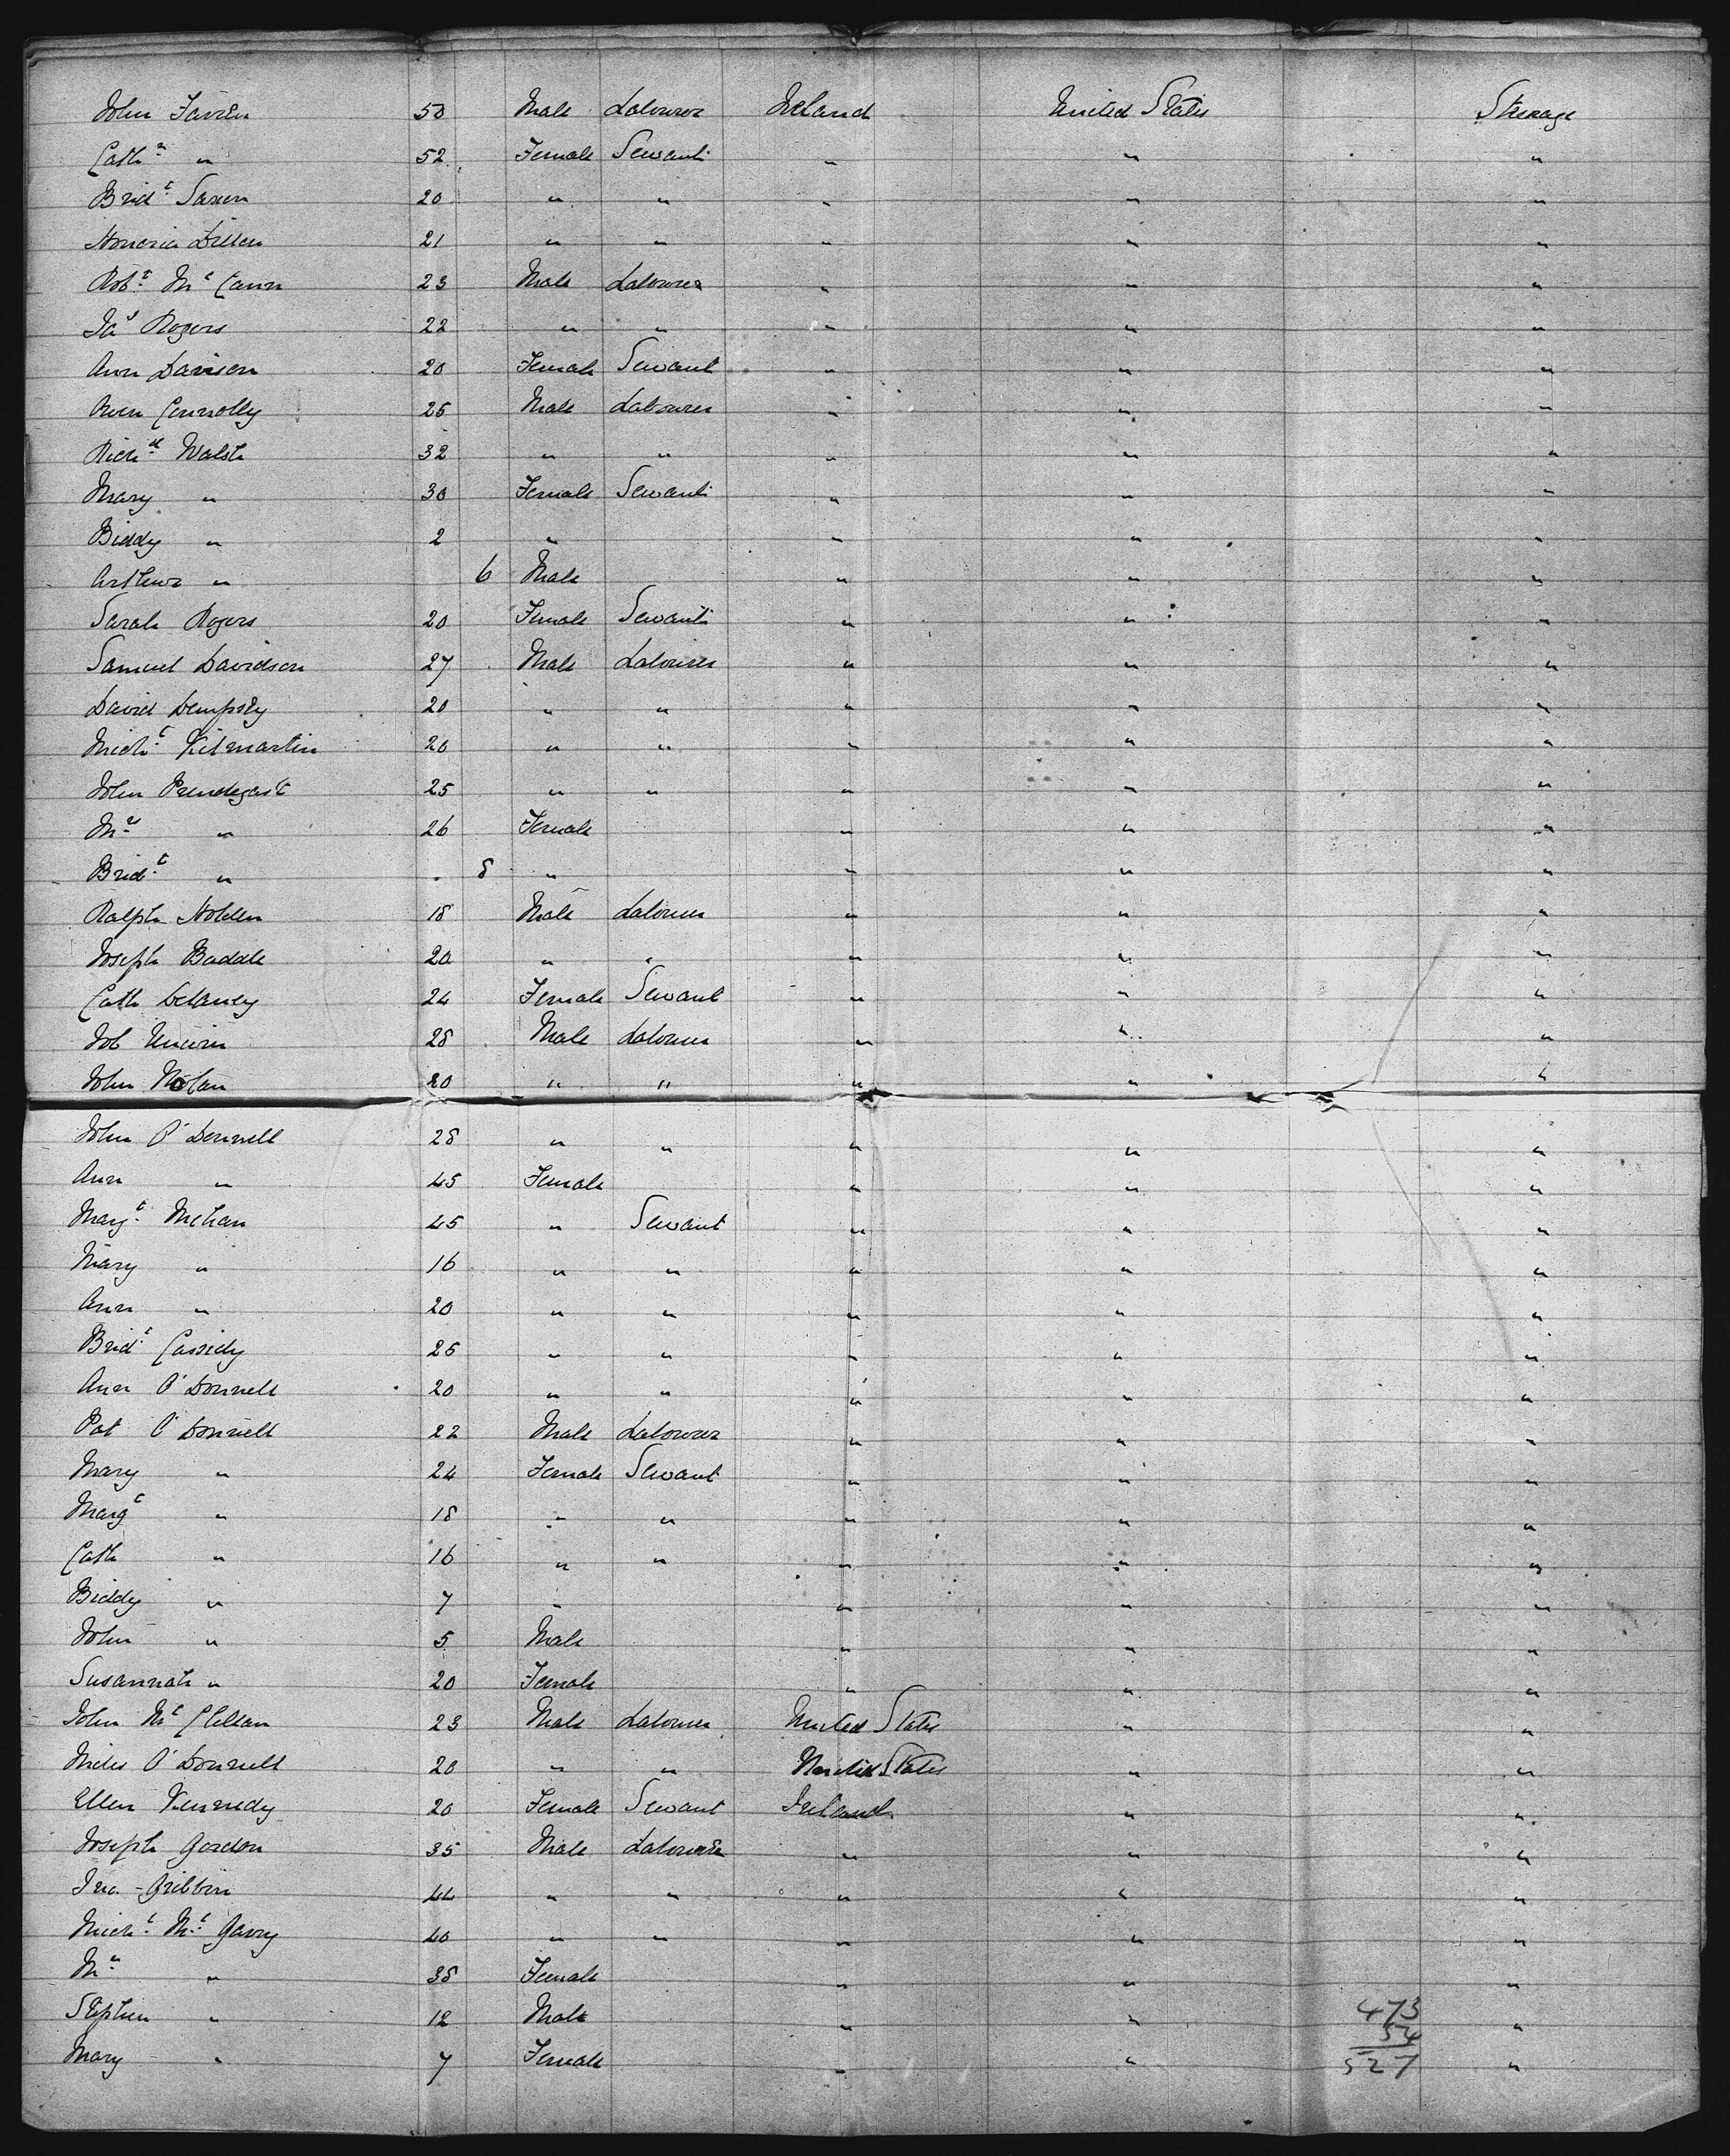 John 50 Male Labourer Ireland United States Steerage
Cathn " 52 Female Servant " " "
Bridt 20 " " " " "
Honoria Dillen 21 " " " " "
Robt Mc Cann 23 Male Labourer " " "
Jas Rogers 22 " " " " "
Ann Davison 20 Female Servant " " "
Owen Connolly 25 Male Labourer " " "
Richd Walsh 32 " " " " "
Mary " 30 Female Servant " " "
Biddy " 2 " " " "
Arthur " 6 Male " " "
Sarah Rogers 20 Female Servant " " "
Samuel Davidson 27 Male Labourer " " "
David Dempsey 20 " " " " "
Michl Kilmartin 20 " " " " "
John Prendegast 25 " " " " "
Mrs " 26 Female " " "
Bridt " 8 " " " "
Ralph Holden 18 Male Labourer " " "
Joseph Baddle 20 " " " " "
Cath Delaney 24 Female Servant " " "
Job Unwin 28 Male Labourer " " "
John Nolan 20 " " " " "
John O'Donnell 28 " " " " "
Ann " 45 Female " " "
Margt Mehan 45 " Servant " " "
Mary " 16 " " " " "
Ann " 20 " " " " "
Bridt Cassidy 25 " " " " "
Ann O'Donnell 20 " " " " "
Pat O'Donnell 22 Male Labourer " " "
Mary " 24 Female Servant " " "
Margt " 18 " " " " "
Cath " 16 " " " " "
Biddy " 7 " " " "
John " 5 Male " " "
Susannah " 20 Female " " "
John Mc Clellan 23 Male Labourer United States " "
Miles O'Donnell 20 " " United States " "
Ellen Kennedy 20 Female Servant Ireland " "
Joseph Gordon 35 Male Labourer " " "
Jno Gribbin 44 " " " " "
Michl Mc Garry 40 " " " " "
Mrs " 38 Female " " "
Stephen " 12 Male " " "
473
54
Mary " 7 Female " " "
527